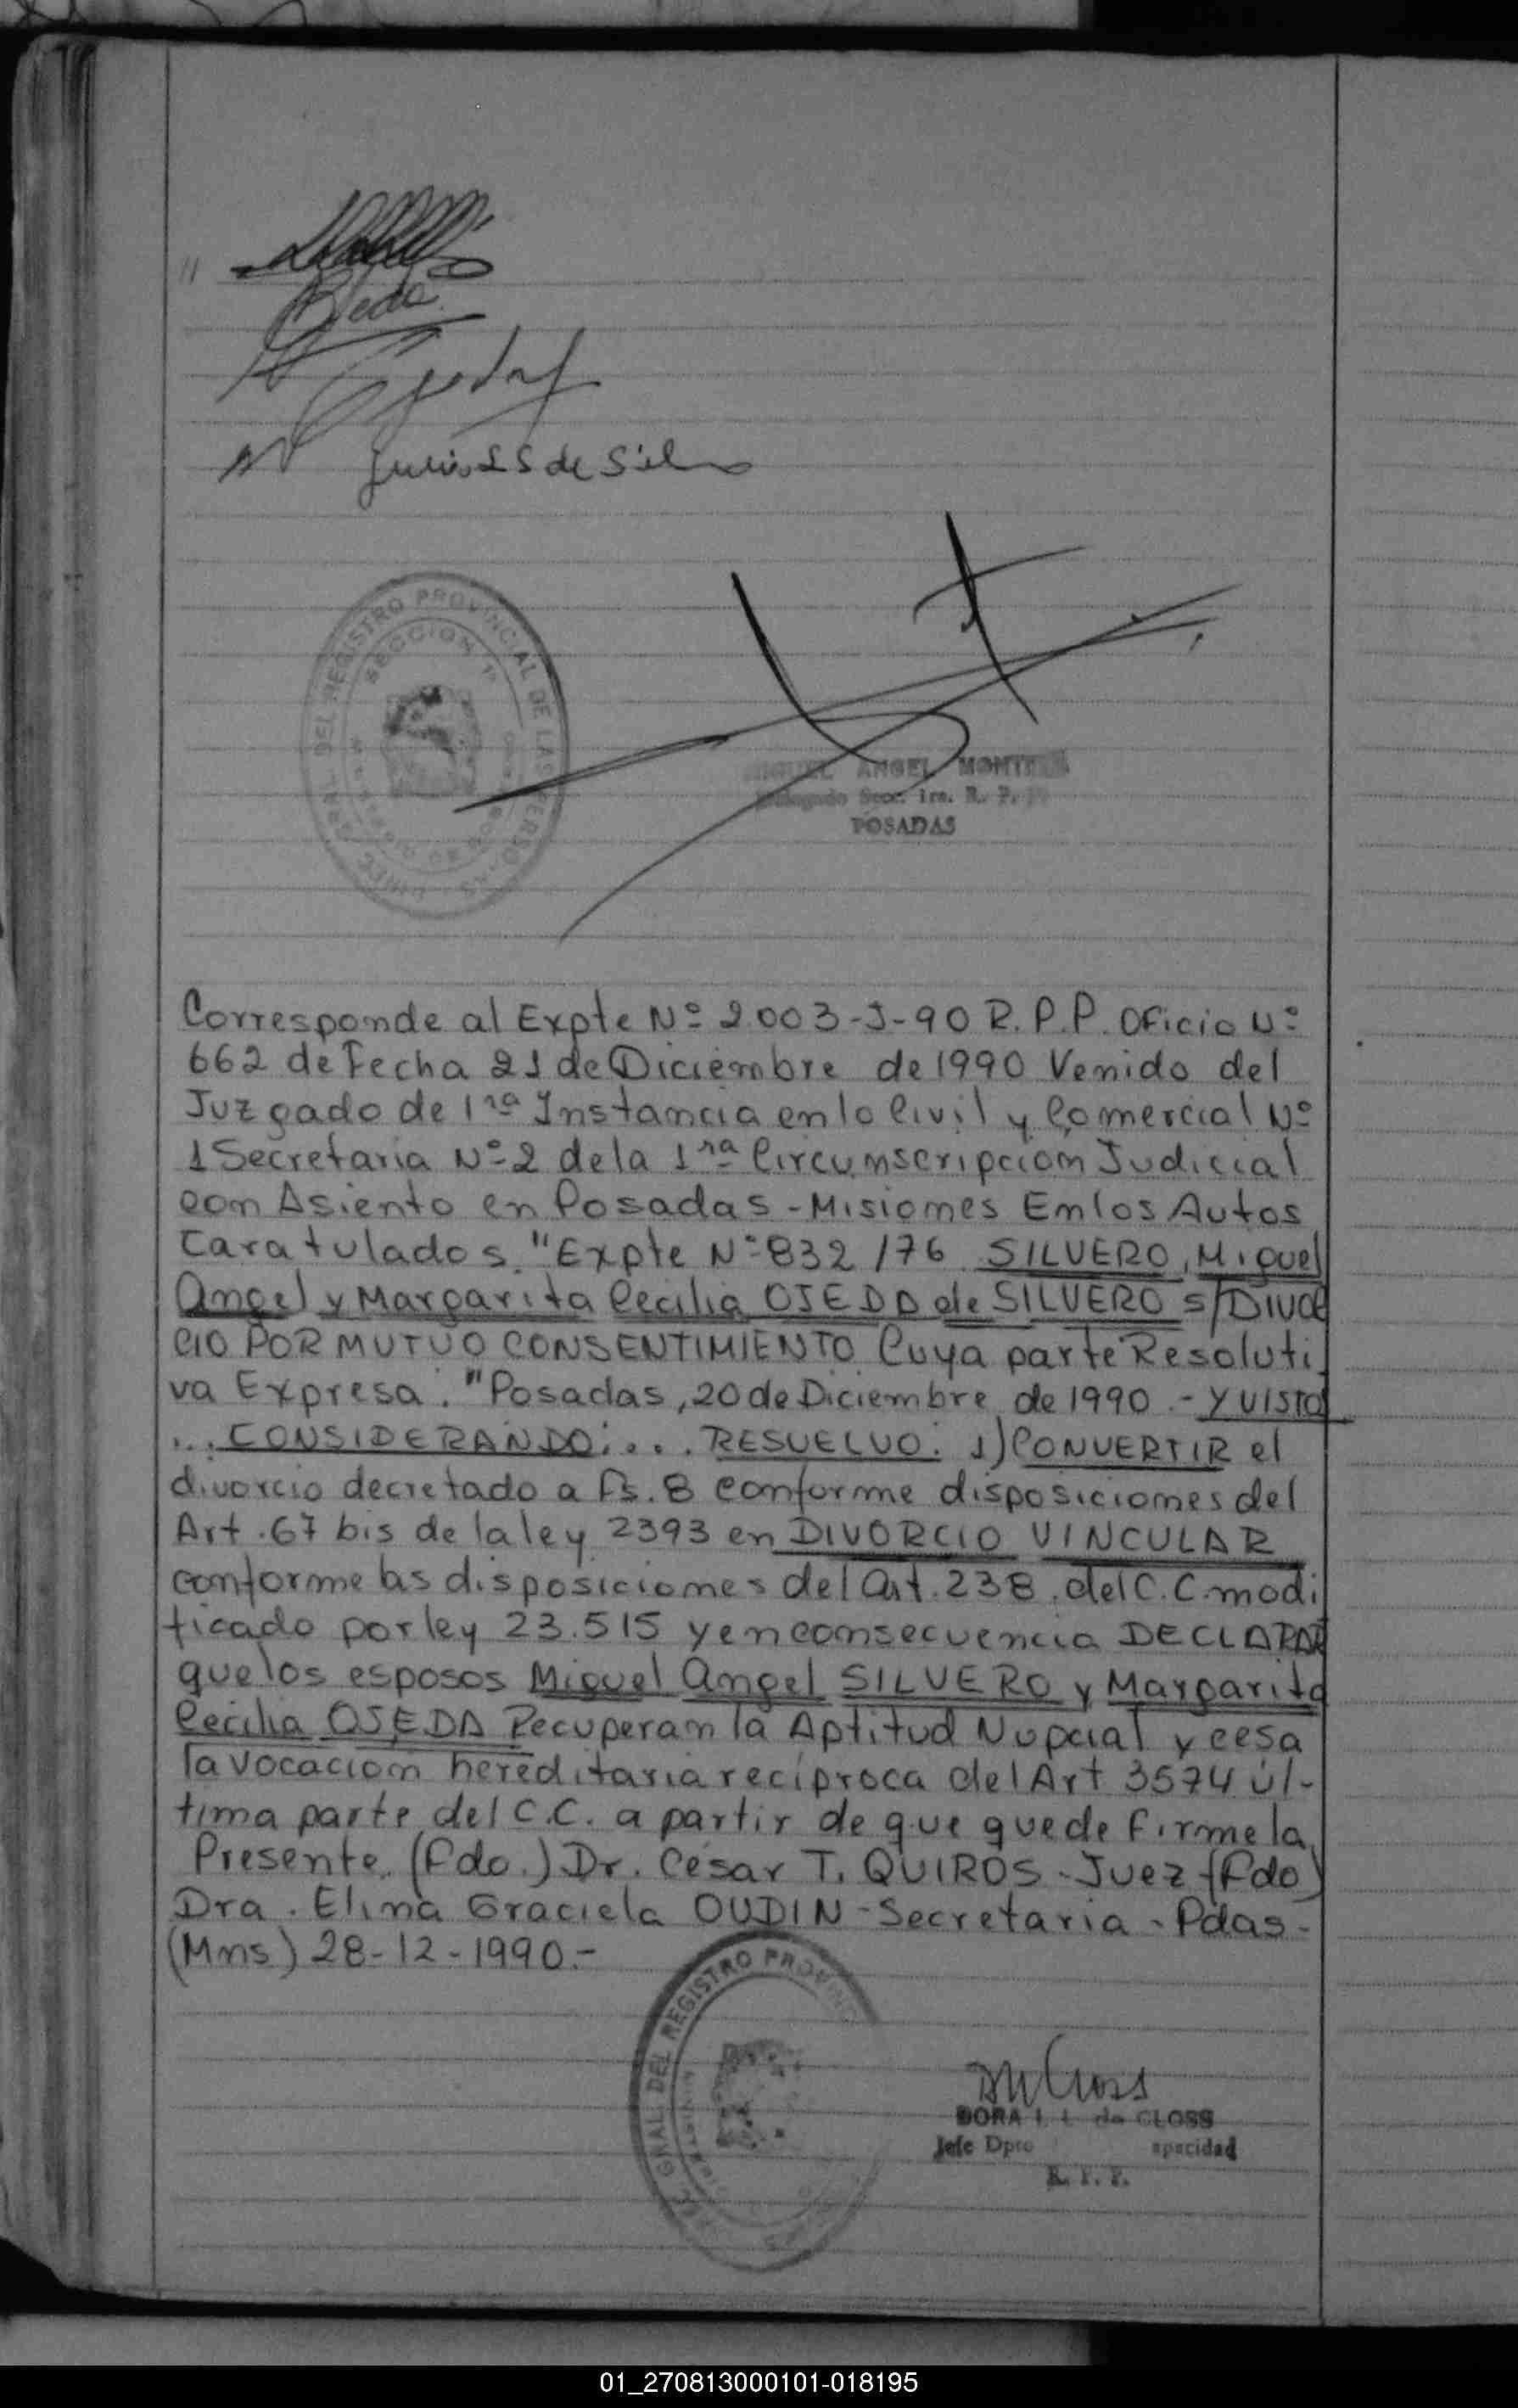 Julia L S de Sil
DEL REGISTRO PROVINCIAL DE LAS PERSONAS
SECCION 1a
ANGEL MONTE
Secc. 1ra. R. P.
POSADAS
Corresponde al Expte Nº 2003-J-90 R.P.P. Oficio Nº
662 de Fecha 21 de Diciembre de 1990 Venido del
Juzgado de 1ra Instancia en lo Civil y Comercial Nº
1 Secretaria Nº 2 de la 1ra Circunscripcion Judicial
con Asiento en Posadas - Misiones En los Autos
Caratulados "Expte Nº 832/76 SILVERO, Miguel
Angel y Margarita Cecilia OJEDA de SILVERO s/DIVOR
CIO POR MUTUO CONSENTIMIENTO Cuya parte Resoluti
va Expresa: "Posadas, 20 de Diciembre de 1990.- Y VISTOS
... CONSIDERANDO:... RESUELVO: 1) CONVERTIR el
divorcio decretado a fs. 8 conforme disposiciones del
Art. 67 bis de la ley 2393 en DIVORCIO VINCULAR
conforme las disposiciones del Art. 238 del C.C. modi
ficado por ley 23.515 y en consecuencia DECLARAR
que los esposos Miguel Angel SILVERO y Margarita
Cecilia OJEDA Recuperan la Aptitud Nupcial y cesa
la vocación hereditaria recíproca del Art 3574 úl-
tima parte del C.C. a partir de que quede firme la
Presente. (Fdo.) Dr. César T. QUIROS - Juez (Fdo)
Dra. Elina Graciela OUDIN - Secretaria - Pdas -
(Mns) 28-12-1990.-
GRAL. DEL REGISTRO PROVINC
DORA I. L. de CLOSS
Jefe Dpto apacidad
R. P. P.
01_270813000101-018195